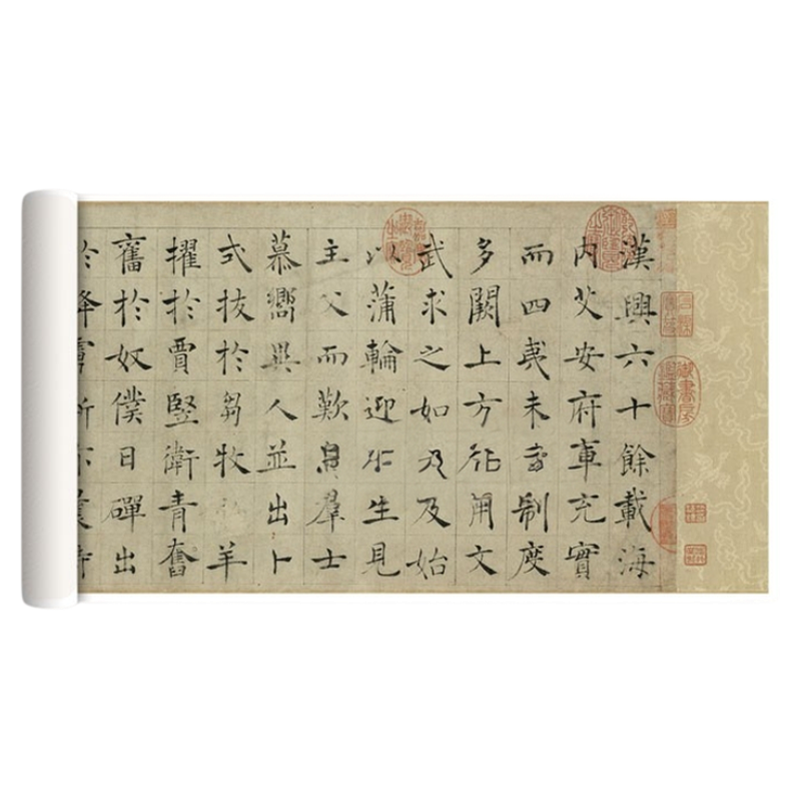 漢興六十餘載海
內艾安府庫充實
而四夷未賓制度
多闕上方欲用文
武求之如及始
以蒲輪迎生見
主父而歎息羣士
慕嚮異人並出卜
式拔於芻牧羊
擢於賈豎衛青奮
奮於奴僕日磾出
於降虜斯亦曩時